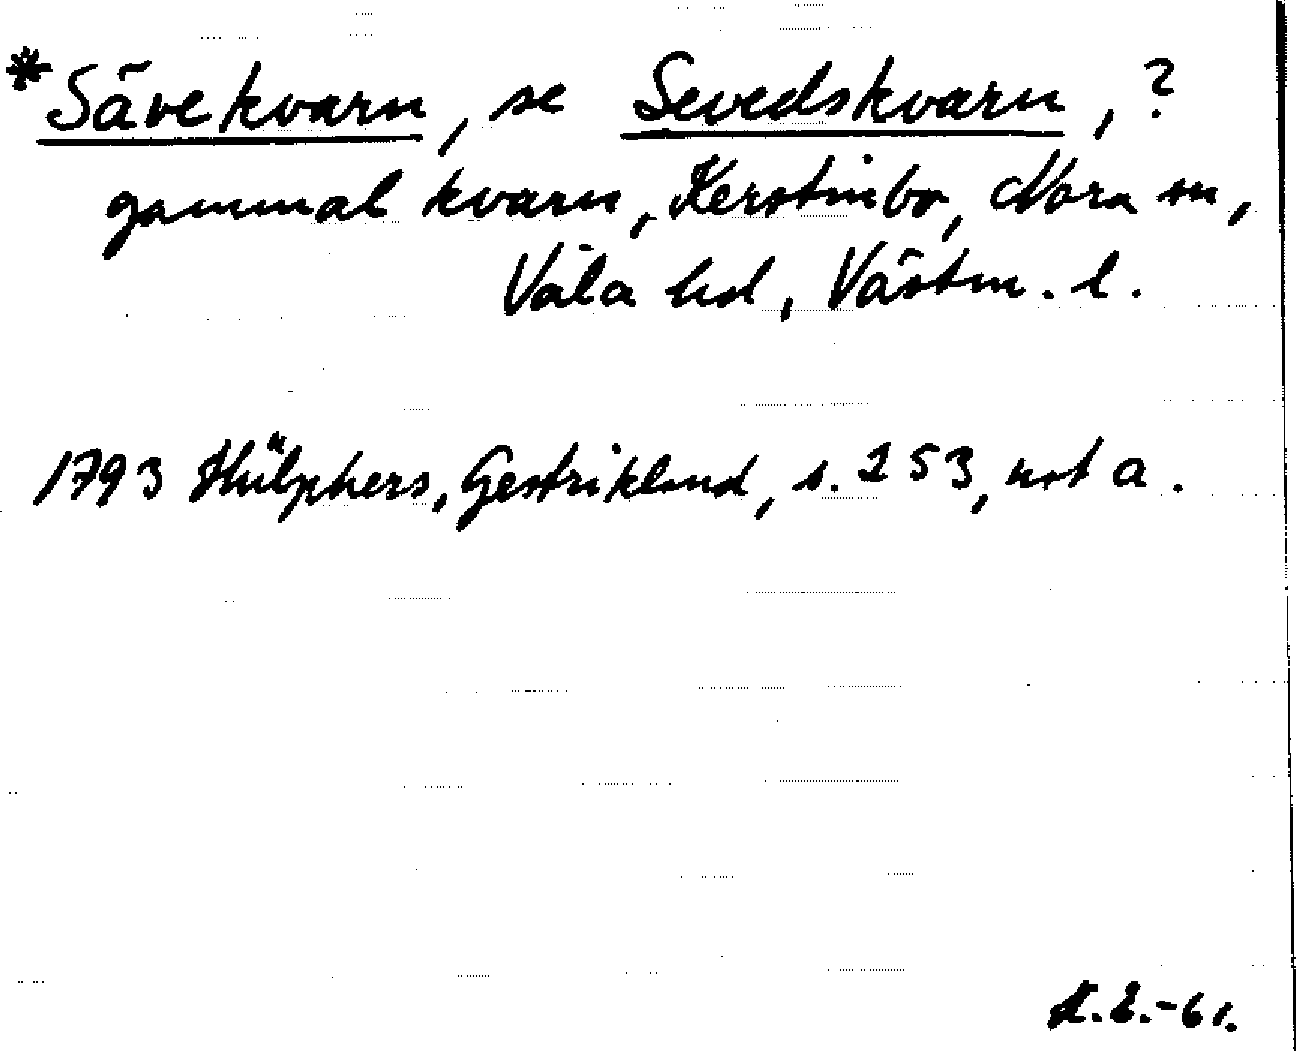 *Sävekvarn, se Sevedskvarn, ?
gammal kvarn, Kerstinbo, Nora sn,
Våla hd, Västm. l.
1793 Hülphers, Gestrikland, s. 253, not a.
-61.